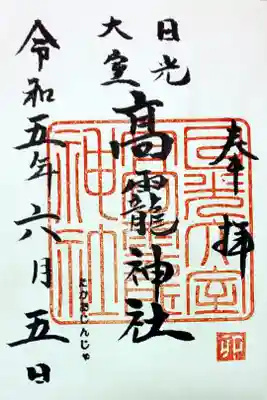 奉拝
日光
大室
高龗神社
たかおじんじゃ
令和五年六月五日
日光大室高龗神社